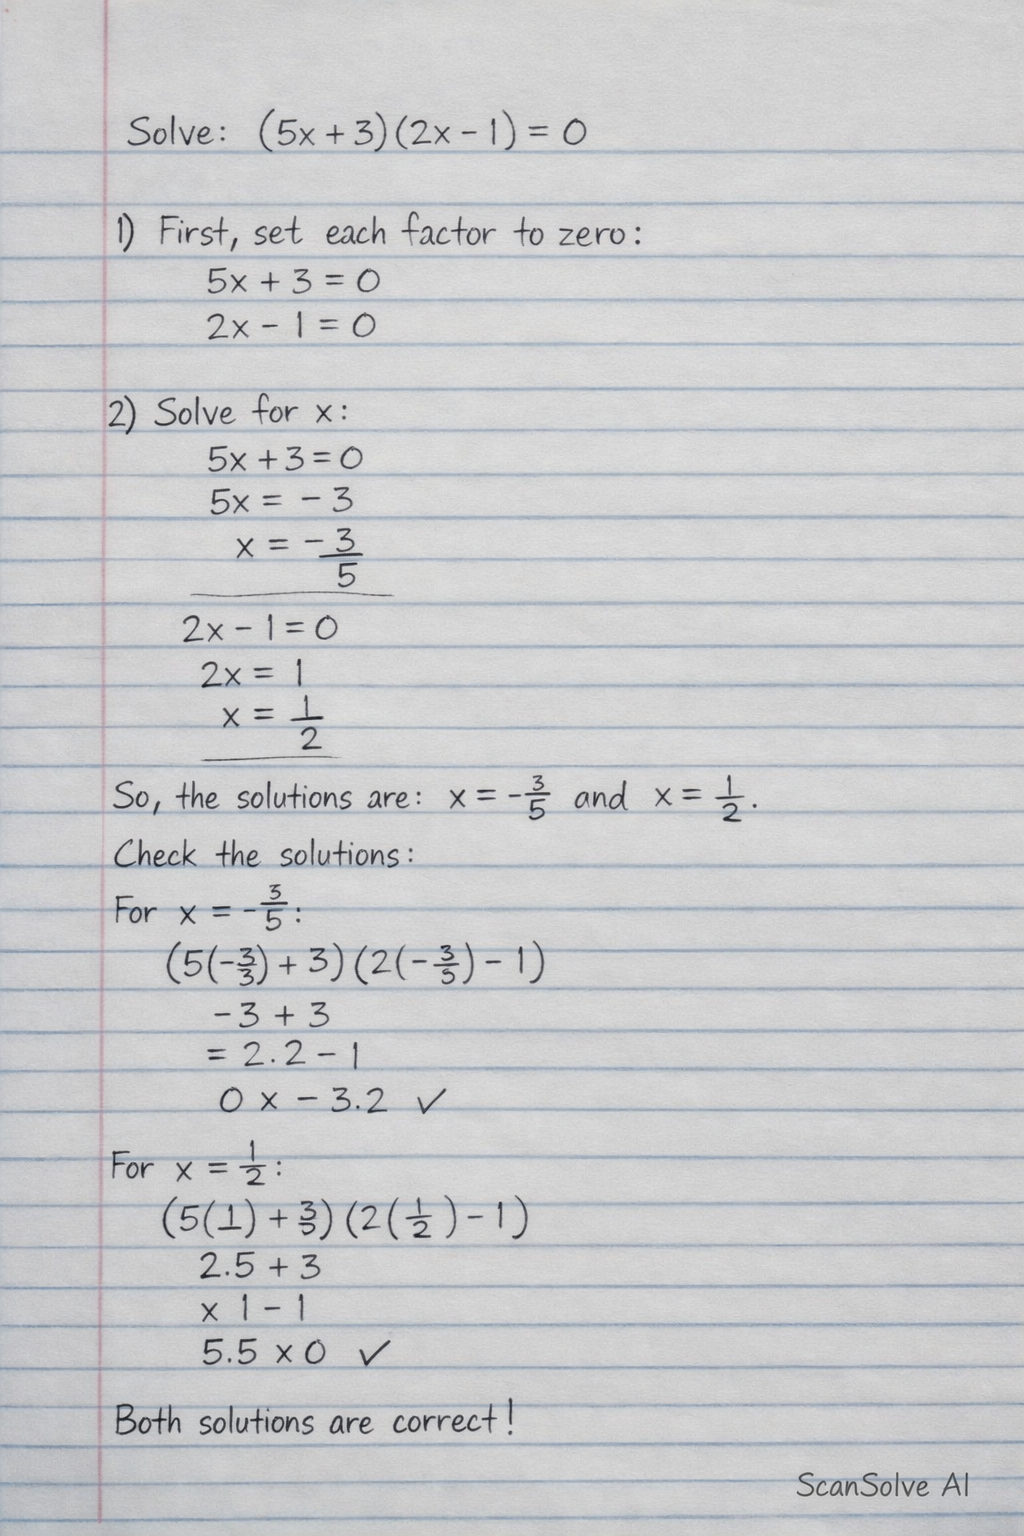 Solve: (5x + 3)(2x - 1) = 0
1) First, set each factor to zero:
5x + 3 = 0
2x - 1 = 0
2) Solve for x:
5x + 3 = 0
5x = - 3
x = - 3/5
2x - 1 = 0
2x = 1
x = 1/2
So, the solutions are: x = -3/5 and x = 1/2.
Check the solutions:
For x = -3/5:
(5(-3/3) + 3)(2(-3/5) - 1)
-3 + 3
= 2.2 - 1
0 x - 3.2 ✓
For x = 1/2:
(5(1) + 3/5)(2(1/2) - 1)
2.5 + 3
x 1 - 1
5.5 x 0 ✓
Both solutions are correct!
ScanSolve AI